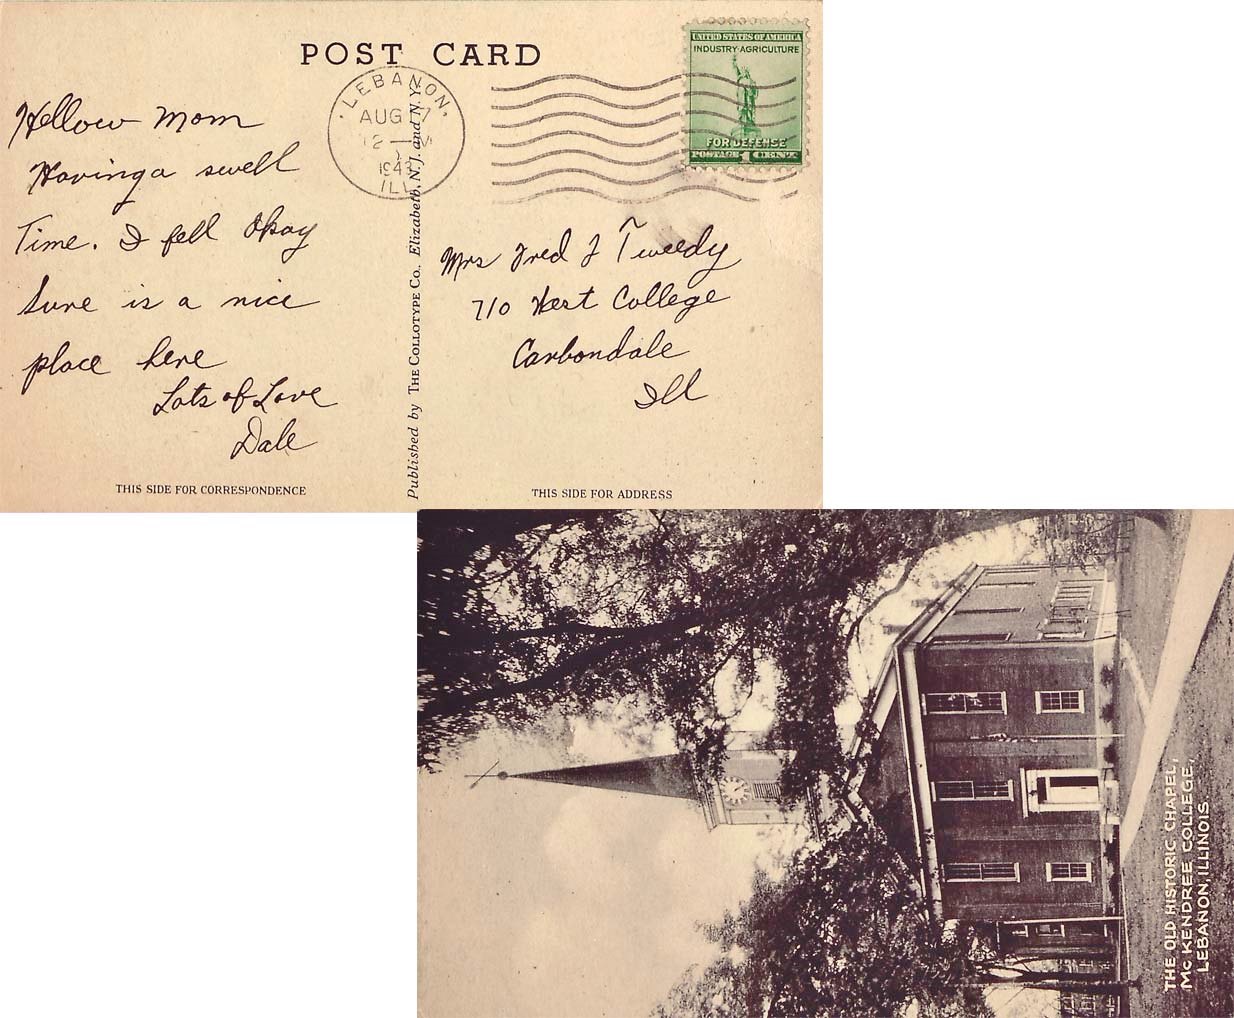 POST CARD
LEBANON.
AUG 7
12 — M
1943
ILL.
UNITED STATES OF AMERICA
INDUSTRY·AGRICULTURE
FOR DEFENSE
POSTAGE 1 CENT
Hellow Mom
Having a swell
Time. I fell Okay
Sure is a nice
place here
Lots of Love
Dale
Published by THE COLLOTYPE CO., Elizabeth, N.J. and N.Y.
Mrs Fred J Tweedy
710 West College
Carbondale
Ill
THIS SIDE FOR CORRESPONDENCE
THIS SIDE FOR ADDRESS
THE OLD HISTORIC CHAPEL,
MC KENDREE COLLEGE,
LEBANON, ILLINOIS.